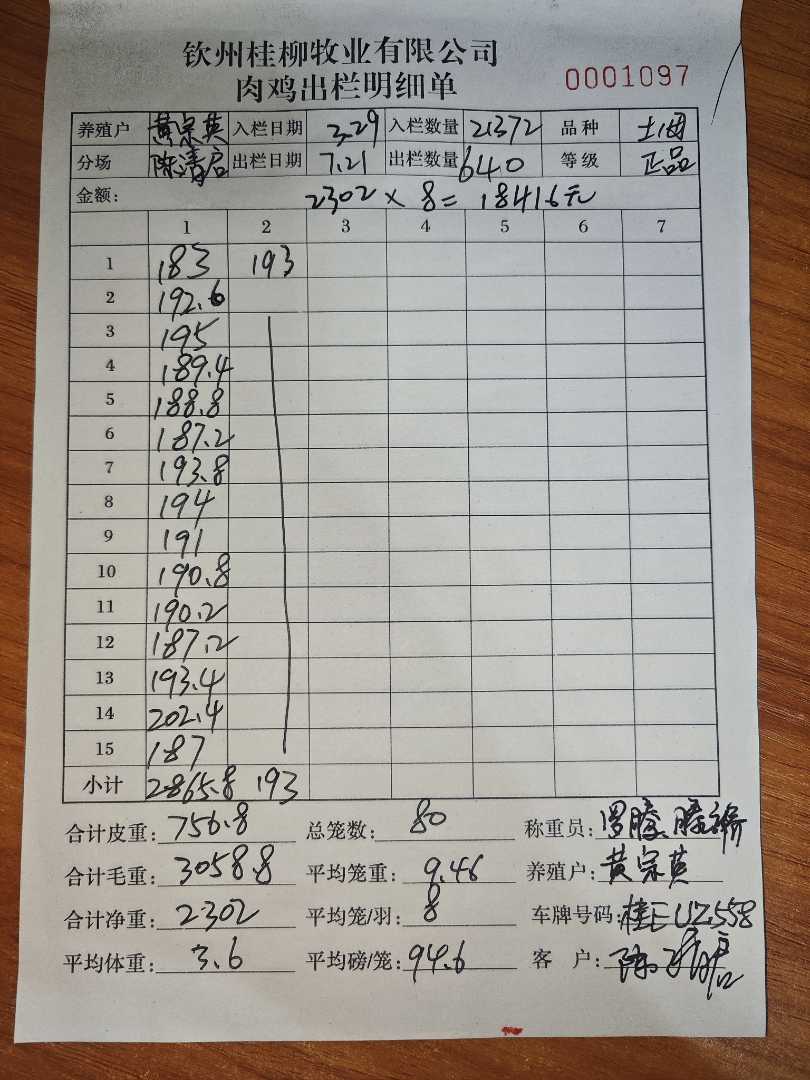 钦州桂柳牧业有限公司
肉鸡出栏明细单 0001097
养殖户 黄宗英 入栏日期 3.29 入栏数量 21372 品种 土2
分场 陈清启 出栏日期 7.21 出栏数量 640 等级 正品
金额: 2302 × 8 = 18416元
1 2 3 4 5 6 7
1 183 193
2 192.6
3 195
4 189.4
5 188.8
6 187.2
7 193.8
8 194
9 191
10 190.8
11 190.2
12 187.2
13 193.4
14 202.4
15 187
小计 2865.8 193
合计皮重: 756.8 总笼数: 80 称重员:
合计毛重: 3058.8 平均笼重: 9.46 养殖户: 黄宗英
合计净重: 2302 平均笼/羽: 8 车牌号码: 桂EUZ558
平均体重: 3.6 平均磅/笼: 94.6 客 户: 陈清启